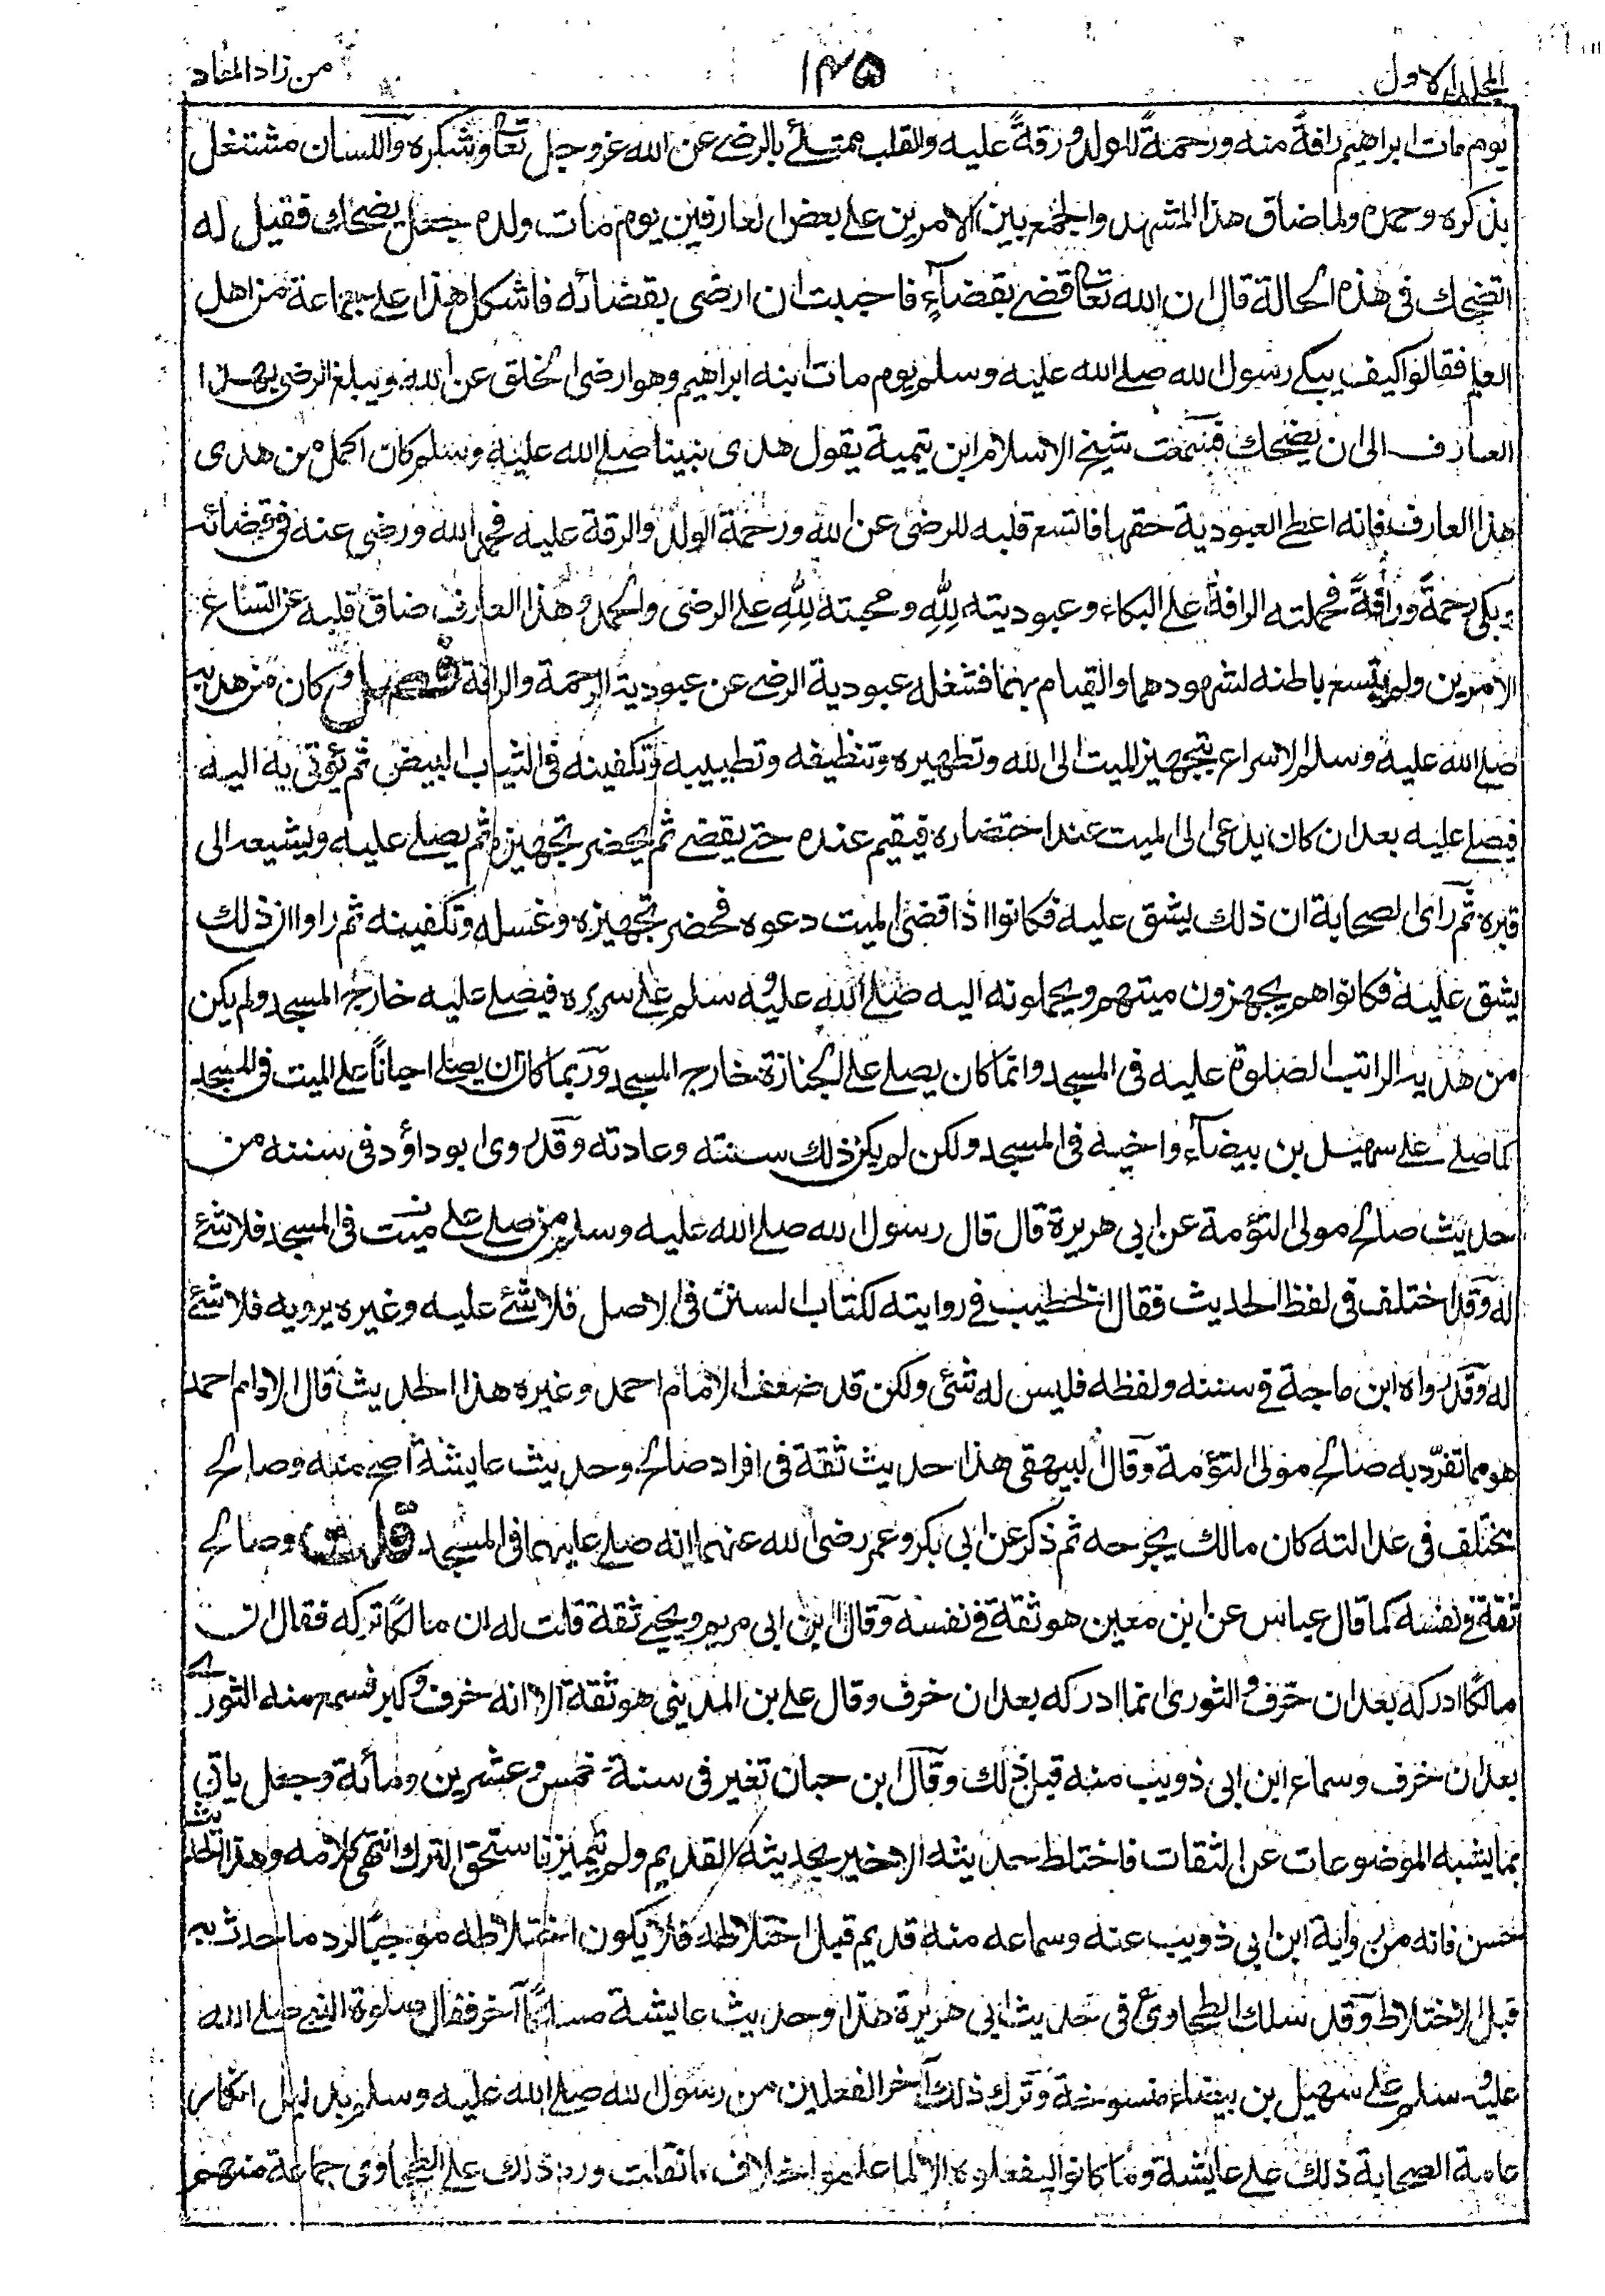 المجلد الاول
١٤٥
من زاد المعاد
يوم مات ابراهيم رافةً منه ورحمةً للولد ورقةً عليه والقلب ممتلئ بالرضى عن الله عز وجل تعالى وشكره واللسان مشتغل
بذكره وحمده ولما ضاق هذا المشهد والجمع بين الامرين على بعض العارفين يوم مات ولده جعل يضحك فقيل له
اتضحك فى هذه الحالة قال ان الله تعالى قضى بقضآءٍ فاحببت ان ارضى بقضائه فاشكل هذا على جماعة من اهل
العلم فقالوا كيف يبكى رسول الله صلى الله عليه وسلم يوم مات ابنه ابراهيم وهو ارضى الخلق عن الله ويبلغ الرضى بهذا
العارف الى ان يضحك فسمعت شيخ الاسلام ابن تيمية يقول هدى نبينا صلى الله عليه وسلم كان اكمل من هدى
هذا العارف فانه اعطى العبودية حقها فاتسع قلبه للرضى عن الله ورحمة الولد والرقة عليه فحمد الله ورضى عنه فى قضائه
وبكى رحمةً ورافةً فحملته الرافة على البكاء وعبوديته لِلّهِ ومحبته لِلّهِ على الرضى والحمد وهذا العارف ضاق قلبه عن اتساع
الامرين ولم يتسع باطنه لشهودهما والقيام بهما فشغله عبودية الرضى عن عبودية الرحمة والرافة فصل وكان من هديه
صلى الله عليه وسلم الاسراع بتجهيز الميت الى الله وتطهيره وتنظيفه وتطييبه وتكفينه فى الثياب البيض ثم يؤتى به اليه
فيصلى عليه بعد ان كان يدعى الى الميت عند احتضاره فيقيم عنده حتى يقضى ثم يحضر تجهيزه ثم يصلى عليه ويشيعه الى
قبره ثم رآى الصحابة ان ذلك يشق عليه فكانوا اذا قضى الميت دعوه فحضر تجهيزه وغسله وتكفينه ثم راوا ان ذلك
يشق عليه فكانوا هم يجهزون ميتهم ويحملونه اليه صلى الله عليه وسلم على سريره فيصلى عليه خارج المسجد ولم يكن
من هديه الراتب الصلوة عليه فى المسجد وانما كان يصلى على الجنازة خارج المسجد وربما كان يصلى احيانًا على الميت فى المسجد
كما صلى على سهيل بن بيضآء واخيه فى المسجد ولكن لم يكن ذلك سنته وعادته وقد روى ابو داؤد فى سننه من
حديث صالح مولى التؤمة عن ابى هريرة قال قال رسول الله صلى الله عليه وسلم من صلى على ميت فى المسجد فلا شئ
له وقد اختلف فى لفظ الحديث فقال الخطيب فى روايته لكتاب السنن فى الاصل فلا شئ عليه وغيره يرويه فلا شئ
له وقد رواه ابن ماجة فى سننه ولفظه فليس له شئ ولكن قد ضعف الامام احمد وغيره هذا الحديث قال الامام احمد
هو مما تفرّد به صالح مولى التؤمة وقال البيهقى هذا حديث ثقة فى افراد صالح وحديث عايشة اصح منه وصالح
يختلف فى عدالته كان مالك يجرحه ثم ذكر عن ابى بكر وعمر رضى الله عنهما انه صلى عليهما فى المسجد قلت وصالح
ثقة فى نفسه كما قال عباس عن ابن معين هو ثقة فى نفسه وقال ابن ابى مريم ويحيى ثقة قلت له ان مالكًا تركه فقال ان
مالكًا ادركه بعد ان خرف والثورى انما ادركه بعد ان خرف وقال على بن المدينى هو ثقة الا انه خرف وكبر فسمع منه الثورى
بعد ان خرف وسماع ابن ابى ذويب منه قبل ذلك وقال ابن حبان تغير فى سنة خمس وعشرين ومائة وجعل ياتى
بما يشبه الموضوعات عن الثقات فاختلط حديثه الاخير بحديثه القديم ولم يتميز فاستحق الترك انتهى كلامه وهذا الحديث
حسن فانه من رواية ابن ابى ذويب عنه وسماعه منه قديم قبل اختلاطه فلا يكون اختلاطه موجبًا لرد ما حدث به
قبل الاختلاط وقد سلك الطحاوى فى حديث ابى هريرة هذا وحديث عايشة مسلكًا آخر فقال صلوة النبى صلى الله
عليه وسلم على سهيل بن بيضاء منسوخة وترك ذلك آخر الفعلين من رسول الله صلى الله عليه وسلم بدليل انكار
عامة الصحابة ذلك على عايشة وما كانوا ليفعلوه الا لما علموا خلاف ما نقلت ورد ذلك على الطحاوى جماعة منهم